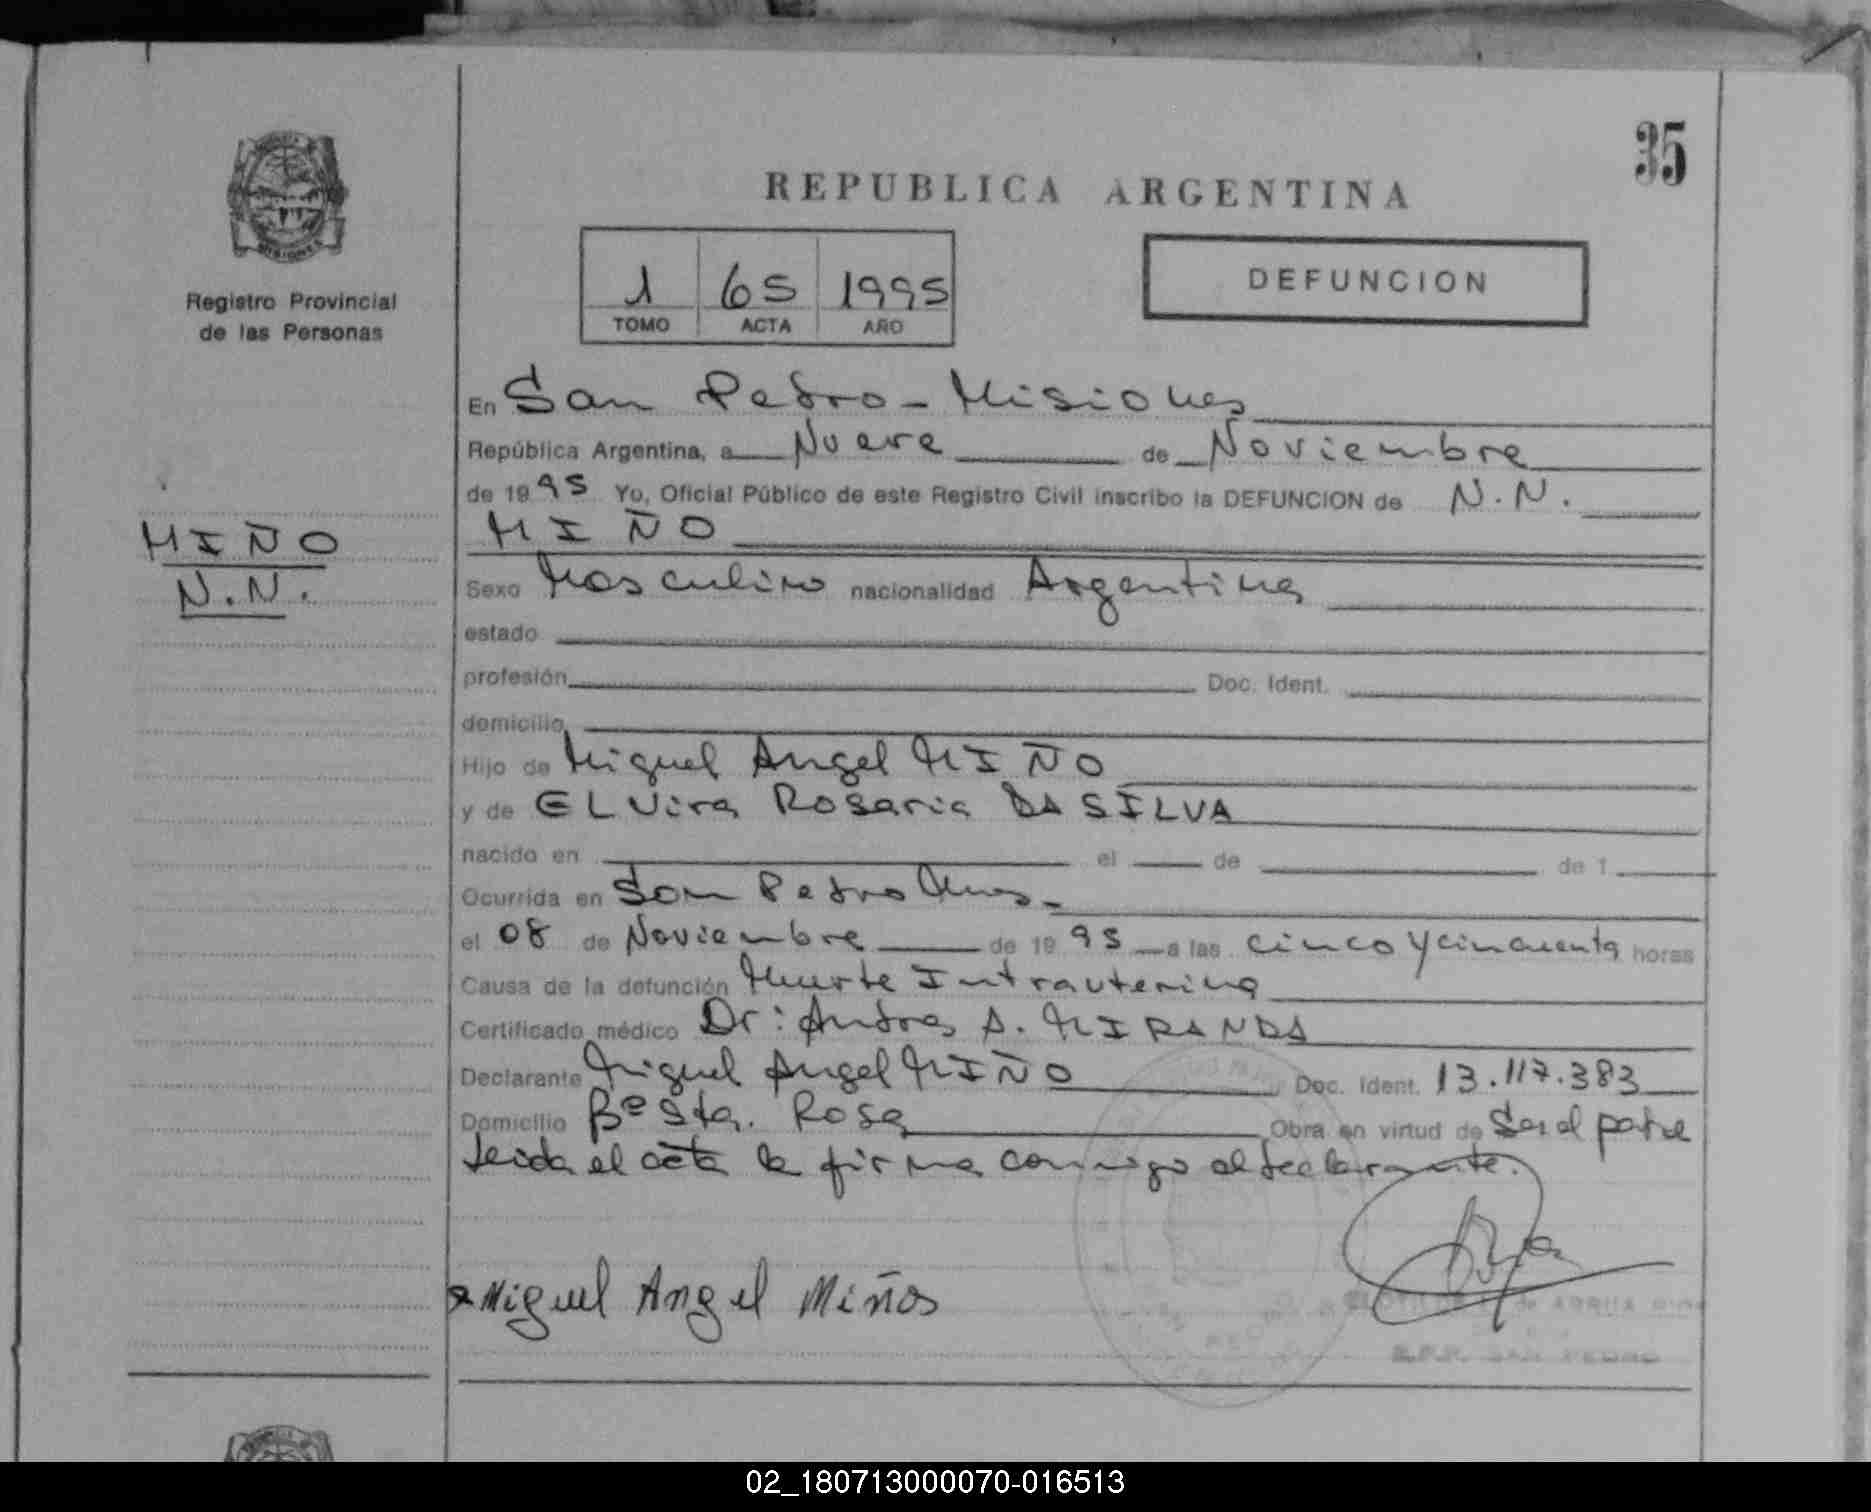 35
REPUBLICA ARGENTINA
MISIONES
Registro Provincial
de las Personas
1 65 1995
TOMO ACTA AÑO
DEFUNCION
En San Pedro - Misiones
República Argentina, a Nueve de Noviembre
de 1995 Yo, Oficial Público de este Registro Civil inscribo la DEFUNCION de N.N.
MIÑO
MIÑO
N.N.
Sexo Masculino nacionalidad Argentina
estado
profesión Doc. Ident.
domicilio
Hijo de Miguel Angel MIÑO
y de ELVira Rosaria DA SILVA
nacido en el de de 1
Ocurrida en San Pedro Mnes.
el 08 de Noviembre de 1995 a las cinco y cincuenta horas
Causa de la defunción Muerte Intrauterina
Certificado médico Dr: Andres A. MIRANDA
Declarante Miguel Angel MIÑO Doc. Ident. 13.117.383
Domicilio Bº Sta. Rosa Obra en virtud de Ser el padre
Leida el acta la firma conmigo el declarante.
Miguel Angel Miños
de ARRUA
R.P.P. SAN PEDRO
02_180713000070-016513